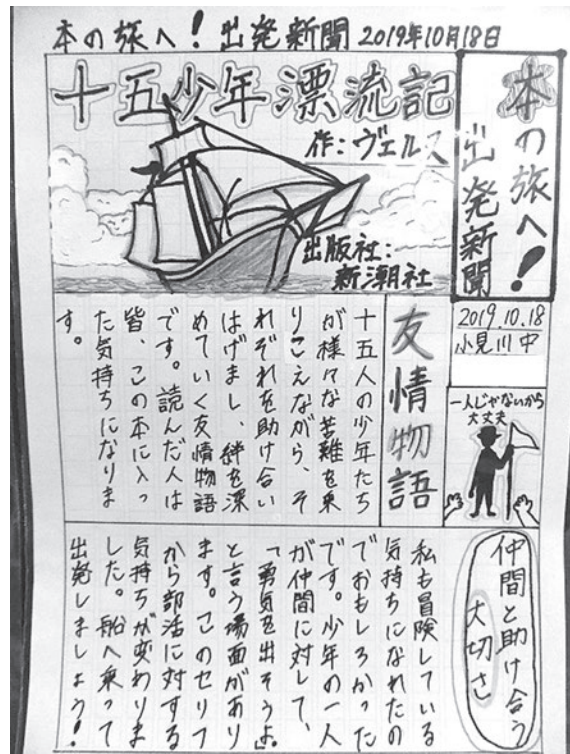 本の旅へ！出発新聞 2019年10月18日
本の旅へ！
出発新聞
十五少年漂流記
作：ヴェルヌ
出版社：
新潮社
2019.10.18
小見川中
一人じゃないから
大丈夫
友情物語
十五人の少年たち
が様々な苦難を乗
りこえながら、そ
れぞれを助け合い
はげまし、絆を深
めていく友情物語
です。読んだ人は
皆、この本に入っ
た気持ちになりま
す。
仲間と助け合う
大切さ
私も冒険している
気持ちになれたの
でおもしろかった
です。少年の一人
が仲間に対して、
「勇気を出そうよ」
と言う場面があり
ます。このセリフ
から部活に対する
気持ちが変わりま
した。船へ乗って
出発しましょう！